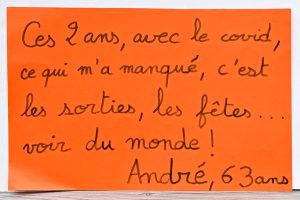 Ces 2 ans, avec le covid,
ce qui m'a manqué, c'est
les sorties, les fêtes...
voir du monde !
André, 63 ans